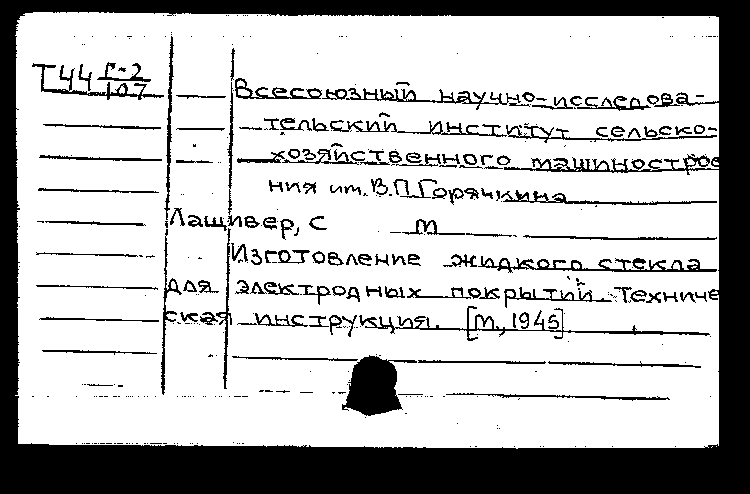 Т44 Г-2
107
Всесоюзный научно-исследова-
тельский институт сельско-
хозяйственного машинострое
ния им. В.П.Горячкина
Лащивер, С м
Изготовление жидкого стекла
для электродных покрытий. Техниче
ская инструкция. [М., 1945]